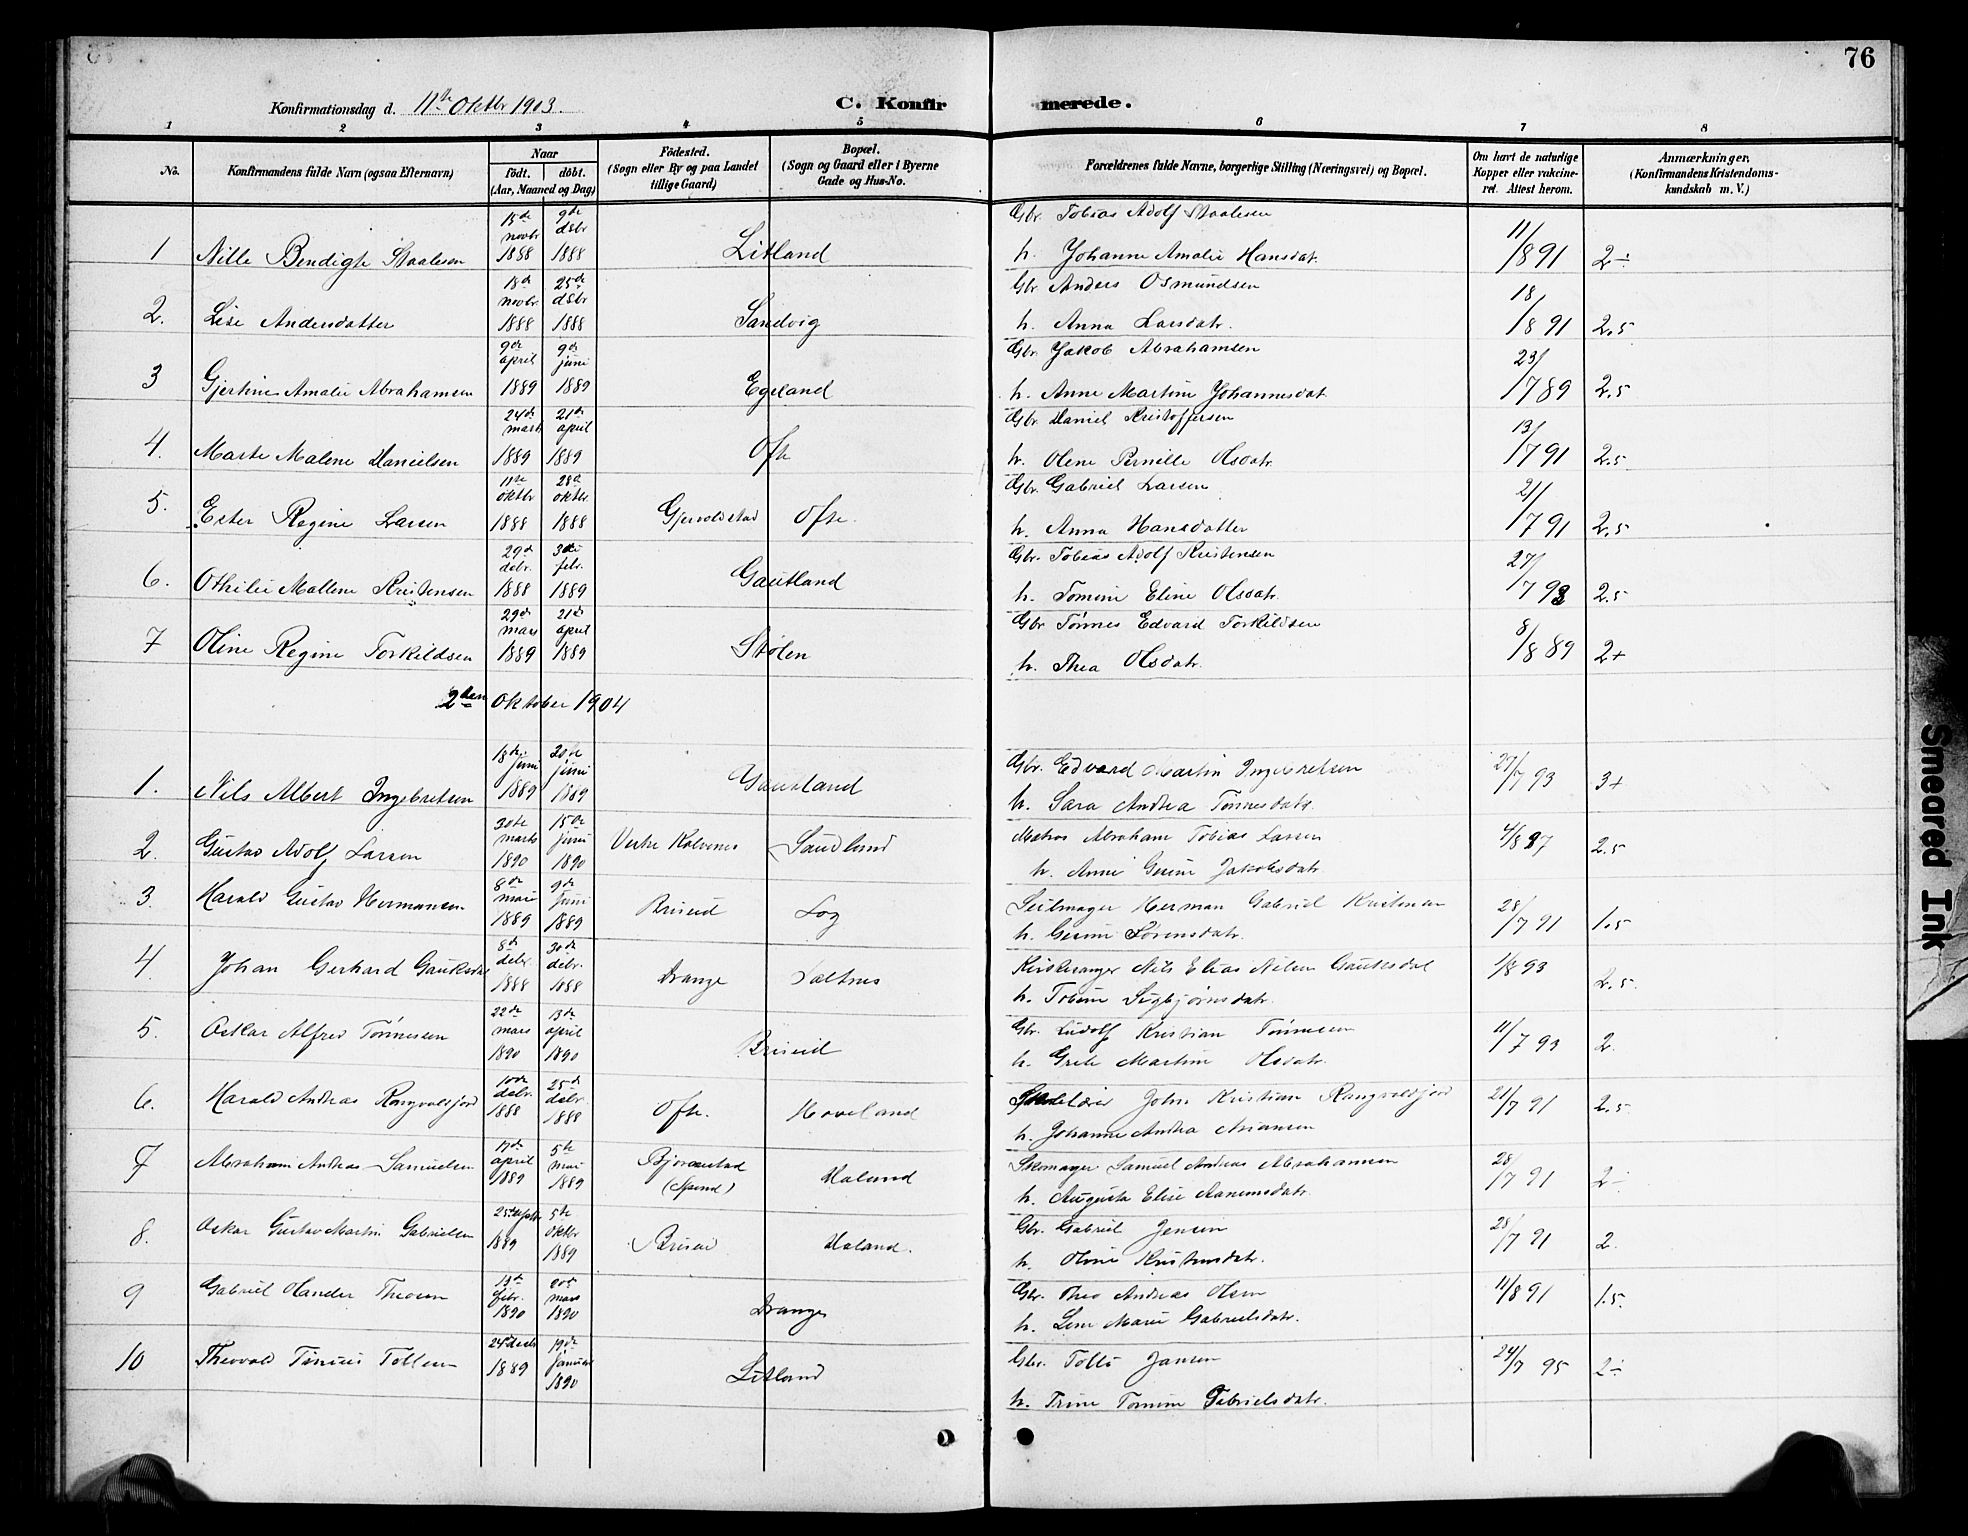 76
Konfirmationsdag d. 11te Oktbr 1903.
C. Konfirmerede.
1 2 3 4 5 6 7 8
No.
Konfirmandens fulde Navn (ogsaa Efternavn)
Naar
födt. döbt.
(Aar, Maaned og Dag)
Födested.
(Sogn eller By og paa Landet
tillige Gaard)
Bopæl.
(Sogn og Gaard eller i Byerne
Gade og Hus-No.
Forældrenes fulde Navne, borgerlige Stilling (Næringsvei) og Bopæl.
Om havt de naturlige
Kopper eller vakcine-
ret. Attest herom.
Anmærkninger,
(Konfirmandens Kristendoms-
kundskab m. V.)
1 Nille Bendigte Staalesen 15de novbr 1888 9de dsbr 1888 Litland Gbr. Tobias Adolf Staalesen 11/891 2÷
h. Johanne Amalie Hansdat.
2. Lise Andersdatter 18de novbr. 1888 25de dsbr 1888 Sandvig Gbr Anders Osmundsen 18/891 2.5
h. Anna Larsdatr.
3 Gjertine Amalie Abrahamsen 9de april 1889 9de juni 1889 Egeland Gbr. Jakob Abrahamsen 23/789 2.5
h. Anne Martine Johannesdat
4. Marte Malene Danielsen 24de marts 1889 21de april 1889 Ofte Gbr. Daniel Kristoffersen 13/791 2.5
h. Olene Pernille Olsdatr.
5. Ester Regine Larsen 11te oktbr 1888 28de oktbr. 1888 Gjervoldstad Ofte. Gbr. Gabriel Larsen 21/791 2.5
h. Anna Hansdatter
6. Othilie Mallene Kristensen 29de debr. 1888 3de febr. 1889 Gautland Gbr. Tobias Adolf Kristensen 27/793 2.5
h. Tomine Eline Olsdatr.
7 Oline Regine Torkildsen 29de mars 1889 21de april 1889 Stölen Gbr Tönnes Edvard Torkildsen 8/889 2+
h. Thea Olsdatr.
2den Oktober 1904
1. Nils Albert Ingebretsen 18de juni 1889 20de juni 1889 Gausland Gbr. Edvard Martin Ingebretsen 27/7 93 3+
h. Sara Andrea Tönnesdatr.
2. Gustav Adolf Larsen 30te marts 1890 15de juni 1890 Vestre Kalvenes Sandland Matros Abraham Tobias Larsen 4/897 2.5
h. Anne Gurine Jakobsdatr.
3. Harald Gustav Hermansen 8de mars 1889 9de juni 1889 Briseid Log Seilmager Herman Gabriel Kristensen 28/7 91 1.5
h. Gesine Sörensdatr.
4. Johan Gerhard Gauksdal 8de debr. 1888 30de debr. 1888 Drange Saltnes Kirkesanger Nils Elias Nilsen Gauksdal 1/8 93 2.5.
h. Tobine Sigbjörnsdatr.
5. Oskar Alfred Tönnesen 22de mars 1890 13de april 1890 Briseid Gbr. Ludolf Kristian Tönnesen 11/7 93 2.
h. Grete Martine Olsdatr.
6. Harald Andreas Rangvalsjord 10de debr. 1888 25de debr. 1888 Ofte. Hoveland John Kristian Rangvalsjord 21/7 91 2.5.
h. Johanne Andrea Ariansen
7 Abraham Andreas Samuelsen 17de april 1889 5te mai 1889 Bjornestad Haland Skomager Samuel Andreas Abrahamsen 28/7 91 2÷
h. Augusta Elise Aanensdatr.
8. Oskar Gustav Martin Gabrielsen 25de 1889 5te oktbr 1889 Briseid Haland. Gbr. Gabriel Jensen 28/7 91 2.
h. Oline Kristensdatr.
9 Gabriel Hander Theosen 13de febr. 1890 mars 1890 Drange Gbr. Theo Andreas Olsen 11/891 1.5.
h. Lene Marie Gabrielsdatr.
10 Theovald Tinius Tollisen 24de 1889 19de januar 1890 Litland Gbr. Tollis Jansen 24/7 95 2÷
h. Trine Tomine Gabrielsdatr.
Smeared Ink